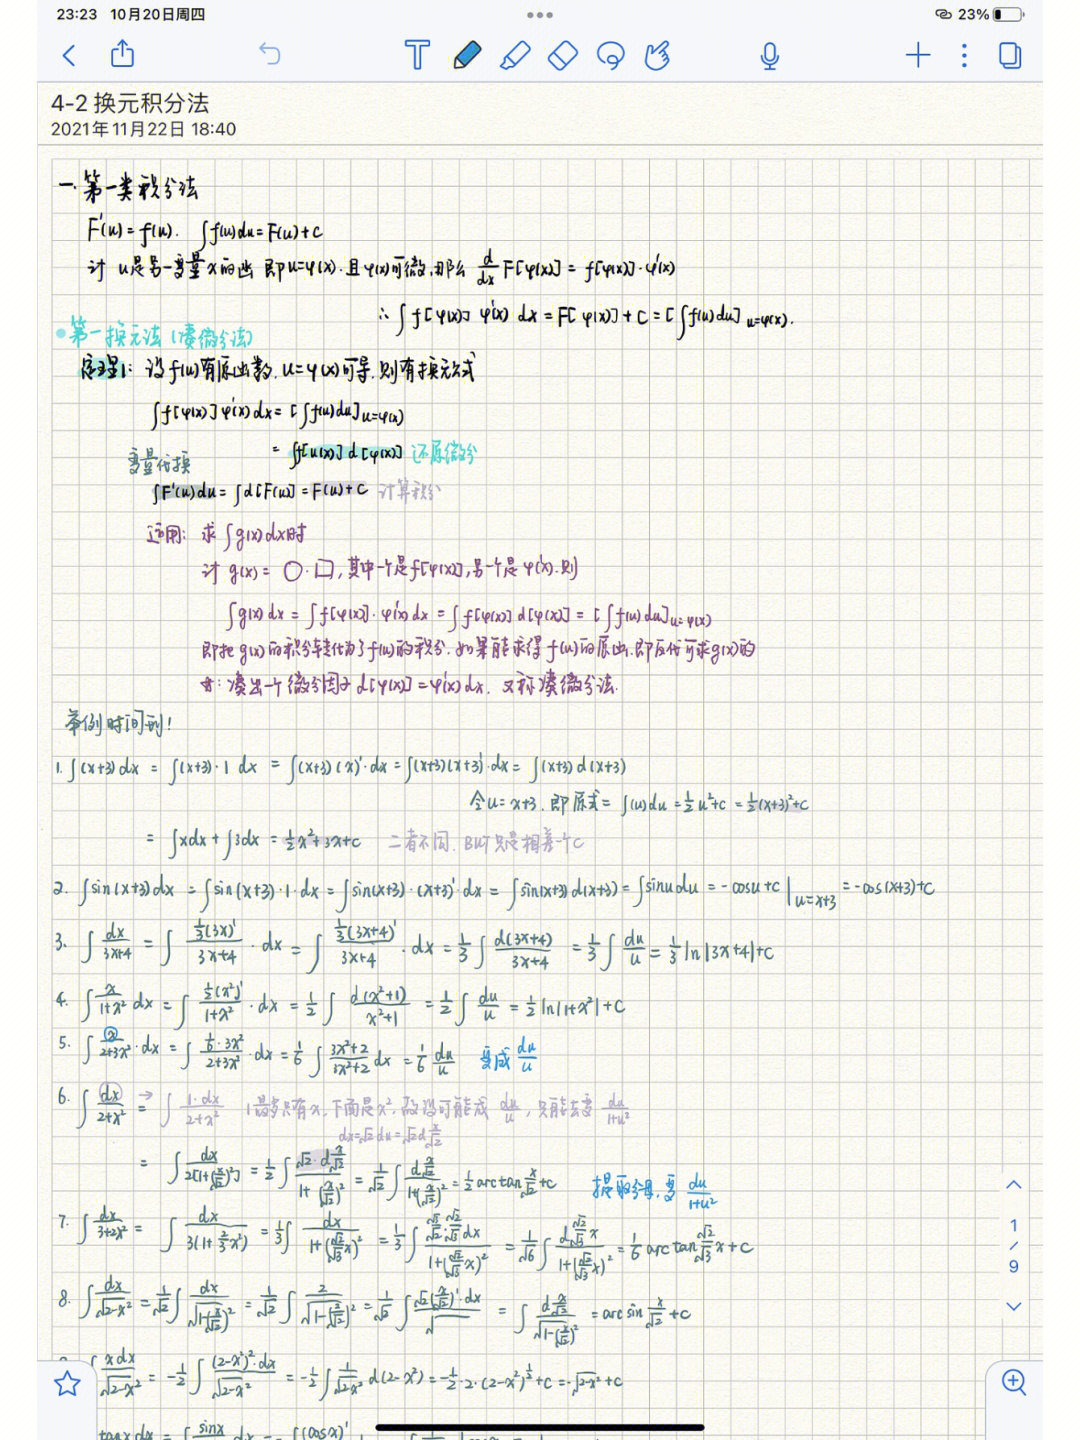 23:23 10月20日周四
23%
4-2 换元积分法
2021年11月22日 18:40
一. 第一类积分法
F'(u) = f(u). ∫f(u)du = F(u)+C
讨 u是另一变量x的函 即u=φ(x). 且φ(x)可微, 那么 d/dx F[φ(x)] = f[φ(x)]·φ'(x)
∴ ∫f[φ(x)] φ'(x) dx = F[φ(x)] + C = [∫f(u)du] u=φ(x).
第一换元法 (凑微分法)
定理1: 设f(u)有原函数, u=φ(x)可导, 则有换元公式
∫f[φ(x)]φ'(x)dx = [∫f(u)du] u=φ(x)
= ∫f[u(x)] d[φ(x)] 还原微分
变量代换
∫F'(u)du = ∫d[F(u)] = F(u)+C 计算积分
适用: 求∫g(x)dx时
讨 g(x) = ○·□, 其中一个是f[φ(x)], 另一个是φ'(x). 则
∫g(x)dx = ∫f[φ(x)]·φ'(x)dx = ∫f[φ(x)]d[φ(x)] = [∫f(u)du] u=φ(x)
即把g(x)的积分转化为了f(u)的积分. 如果能求得f(u)的原函, 即反代可求g(x)的
☆: 凑出一个微分因子d[φ(x)] = φ'(x)dx. 又称凑微分法.
举例时间到!
1. ∫(x+3)dx = ∫(x+3)·1 dx = ∫(x+3)(x)'·dx = ∫(x+3)(x+3)'·dx = ∫(x+3)d(x+3)
令u=x+3. 即原式 = ∫(u)du = 1/2 u²+c = 1/2(x+3)²+c
= ∫xdx + ∫3dx = 1/2 x²+3x+c 二者不同. BUT只是相差一个C
2. ∫sin(x+3)dx = ∫sin(x+3)·1·dx = ∫sin(x+3)·(x+3)'·dx = ∫sin(x+3)d(x+3) = ∫sinudu = -cosu+c | u=x+3 = -cos(x+3)+c
3. ∫dx/(3x+4) = ∫ 1/3(3x)'/(3x+4) ·dx = ∫ 1/3(3x+4)'/(3x+4) ·dx = 1/3 ∫ d(3x+4)/(3x+4) = 1/3 ∫ du/u = 1/3 ln|3x+4|+c
4. ∫ x/(1+x²) dx = ∫ 1/2(x²)'/(1+x²) ·dx = 1/2 ∫ d(x²+1)/(x²+1) = 1/2 ∫ du/u = 1/2 ln|1+x²|+C
5. ∫ x/(2+3x²) ·dx = ∫ 1/6·3x²/(2+3x²) ·dx = 1/6 ∫ (3x²+2)/(3x²+2) dx = 1/6 du/u 变成 du/u
6. ∫ dx/(2+x²) = → ∫ 1·dx/(2+x²) 1最多只有x, 下面是x², 故没可能成 du/u, 只能去变 du/(1+u²)
dx=√2du=√2d x/√2
= ∫ dx/2[1+(x/√2)²] = 1/2 ∫ √2·d x/√2 /(1+(x/√2)²) = 1/√2 ∫ d x/√2 /(1+(x/√2)²) = 1/2 arctan x/√2 +c 提取分母, 变 du/(1+u²)
7. ∫ dx/(3+2x²) = ∫ dx/3(1+2/3x²) = 1/3 ∫ dx/(1+(√2/√3 x)²) = 1/3 ∫ √3/√2·√2/√3 dx/(1+(√2/√3 x)²) = 1/√6 ∫ d √2/√3 x/(1+(√2/√3 x)²) = 1/6 arctan √2/√3 x+c
8. ∫ dx/√(2-x²) = 1/√2 ∫ dx/√(1-(x/√2)²) = 1/√2 ∫ 2/√(1-(x/√2)²) = 1/√2 ∫ √2(x/√2)'·dx/√ = ∫ d x/√2 /√(1-(x/√2)²) = arcsin x/√2 +c
∫ xdx/√(2-x²) = -1/2 ∫ (2-x²)'·dx/√(2-x²) = -1/2 ∫ 1/√(2-x²) d(2-x²) = -1/2·2·(2-x²)^1/2+c = -√(2-x²)+c
1/9